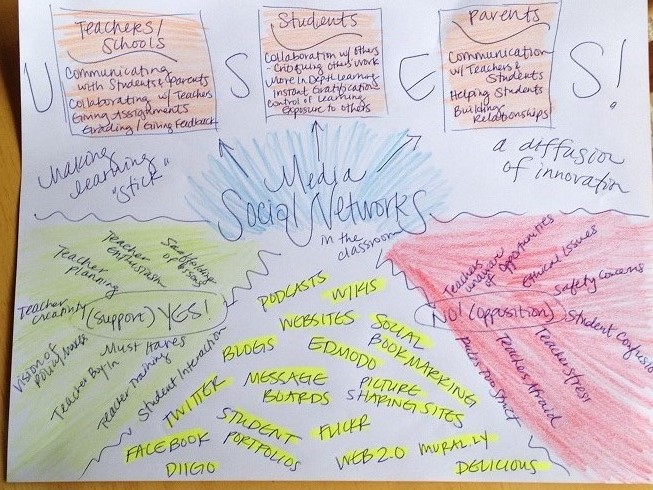 U S E S!
Teachers/
Schools
Communicating
with Students & Parents
Collaborating w/ Teachers
Giving Assignments
Grading / Giving Feedback
Students
Collaboration w/ Others
- Critiquing Others Work
More In Depth Learning
Instant Gratification
Control of Learning
Exposure to others
Parents
Communication
w/ Teachers &
Students
Helping Students
Building
Relationships
Making
learning
"stick"
Media
Social Networks
in the
classroom
a diffusion
of innovation
Teacher
enthusiasm
Scaffolding
of
Teacher
planning
Teacher creativity
(Support) YES!
Vision of
Must Haves
Teacher Buy In
Teacher Training
Student Interaction
Teachers
unaware
of Opportunities
Ethical Issues
Safety Concerns
No! (Opposition)
Student Confusion
Teacher stress
Teachers Afraid
Policies Too Strict
PODCASTS
WIKIS
WEBSITES
SOCIAL
BOOKMARKING
BLOGS
EDMODO
MESSAGE
BOARDS
PICTURE
SHARING SITES
TWITTER
STUDENT
PORTFOLIOS
FLICKR
FACEBOOK
DIIGO
WEB 2.0
MURAL.LY
DELICIOUS